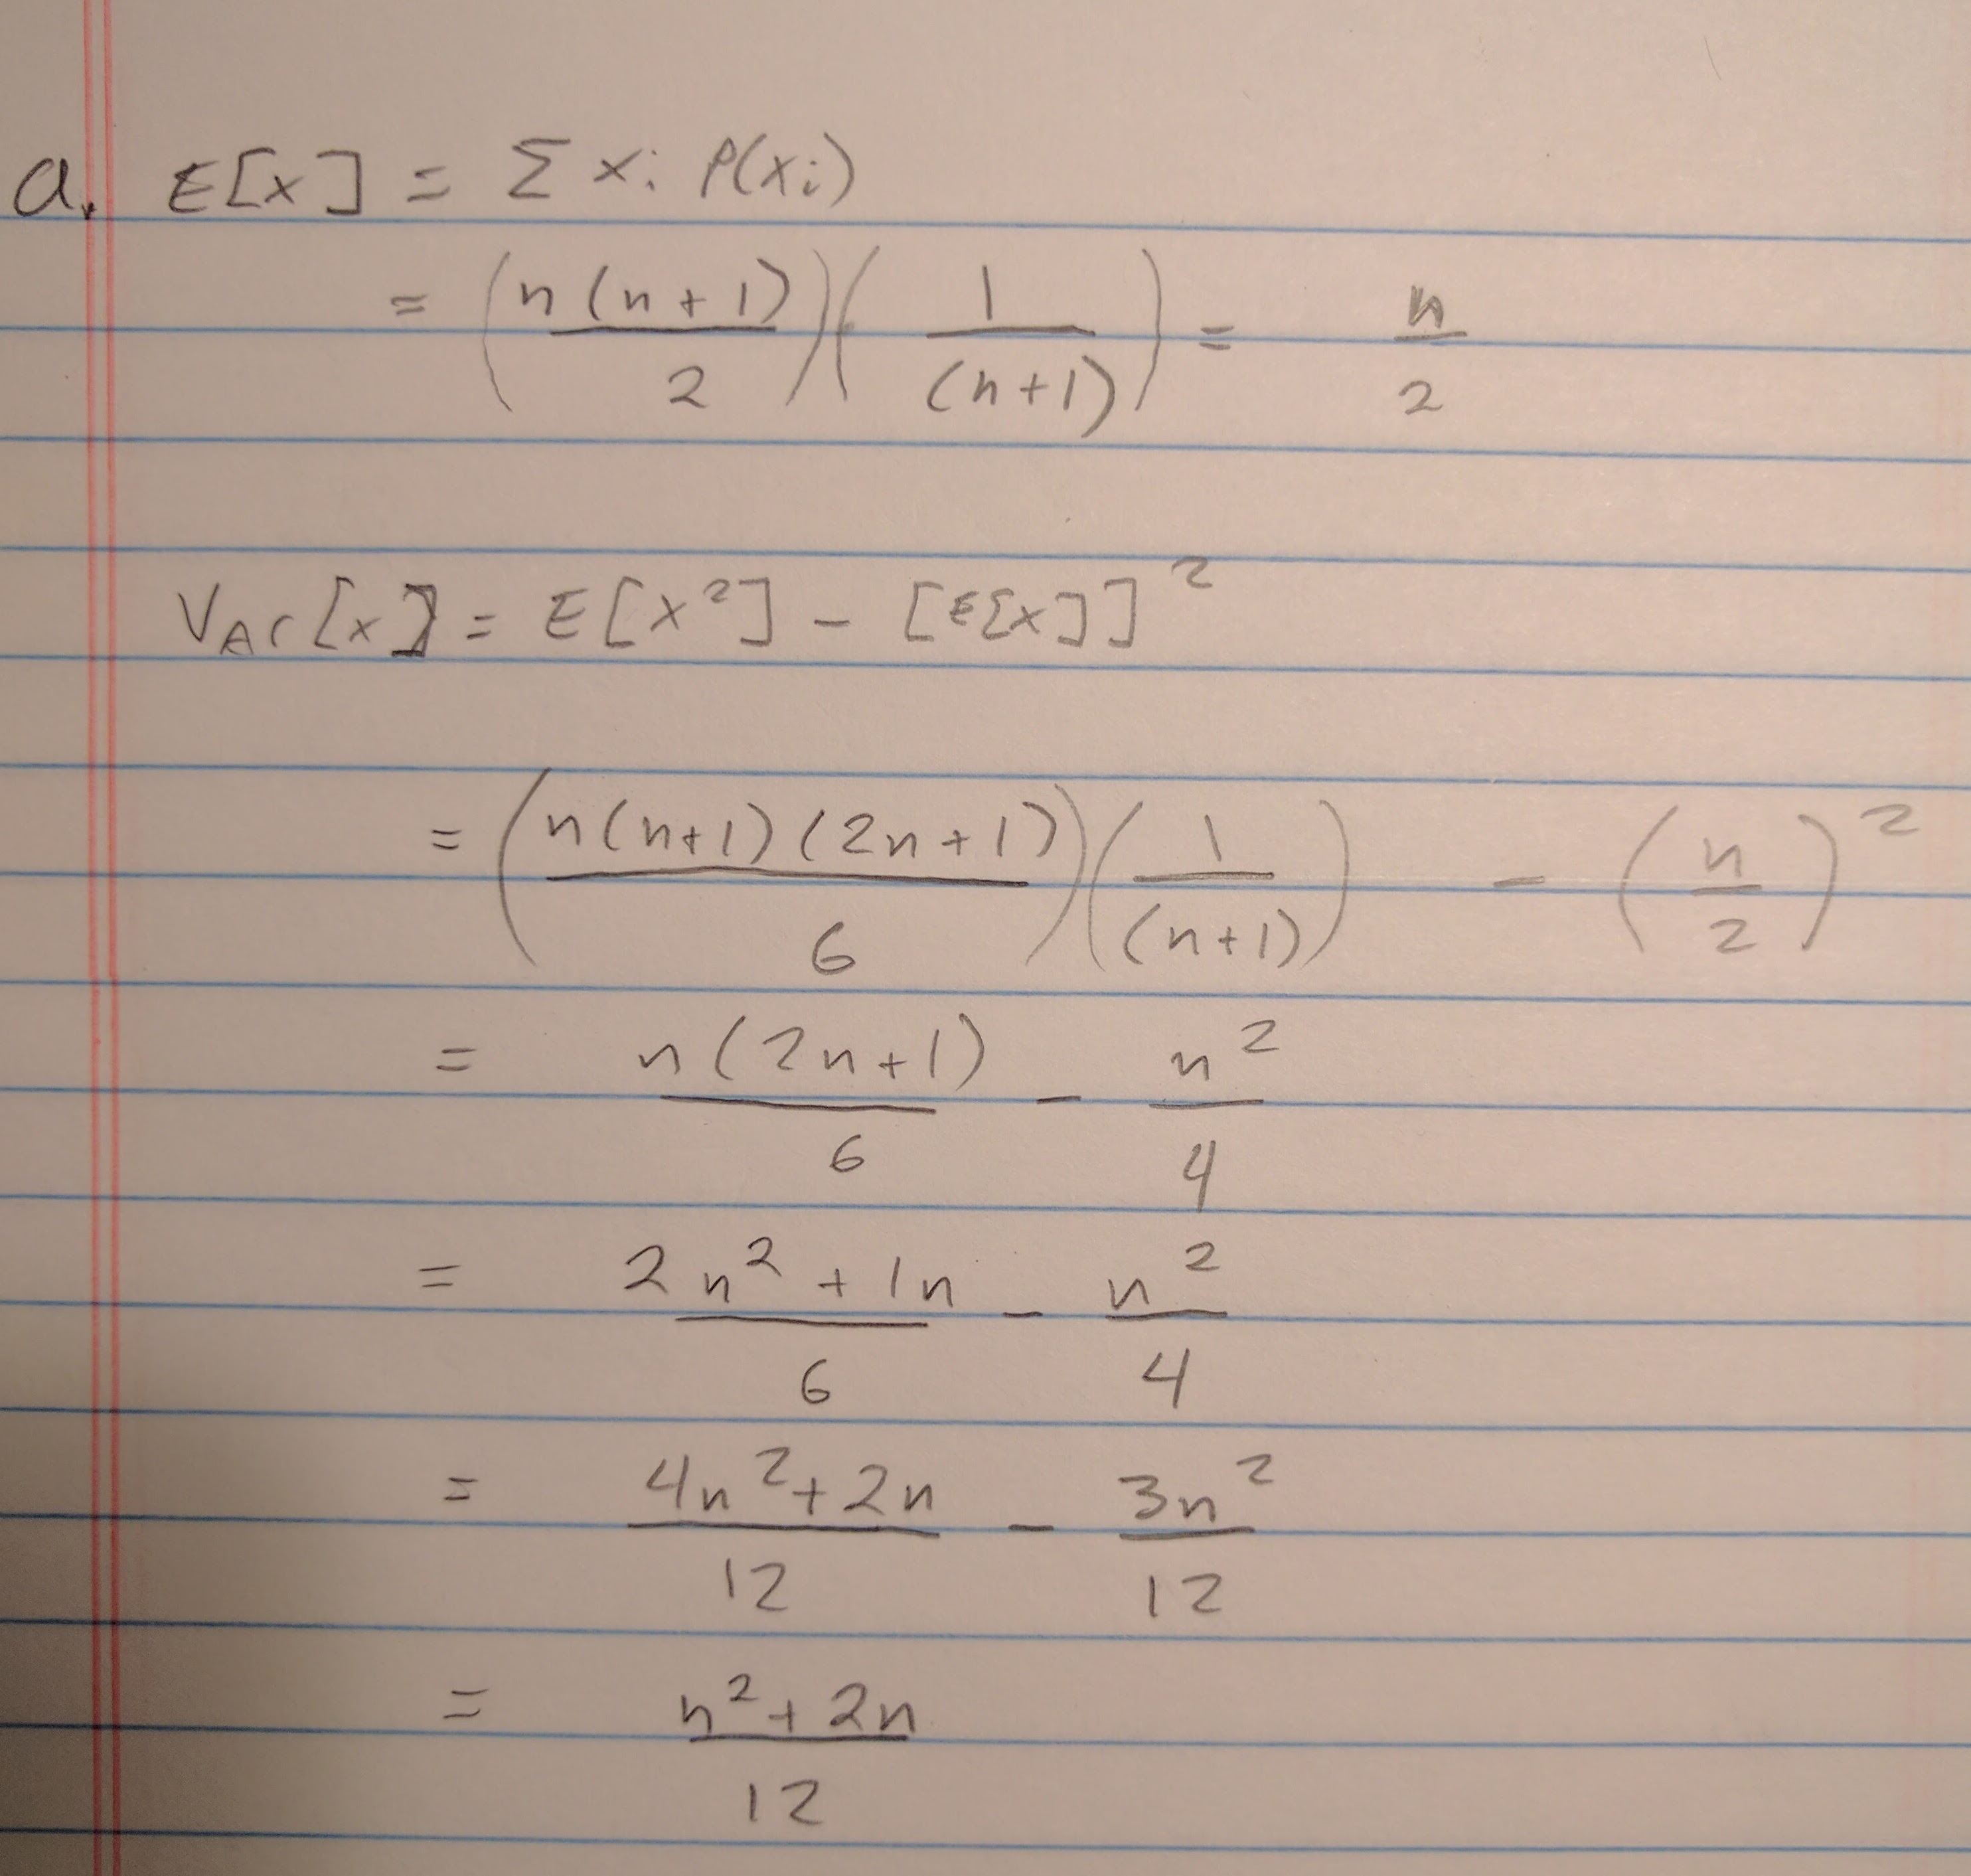 a. E[x] = Σ xᵢ P(xᵢ)
= (n(n+1)/2)(1/(n+1)) = n/2
VAr[x] = E[X²] - [E[x]]²
= (n(n+1)(2n+1)/6)(1/(n+1)) - (n/2)²
= n(2n+1)/6 - n²/4
= 2n²+1n/6 - n²/4
= 4n²+2n/12 - 3n²/12
= n²+2n/12